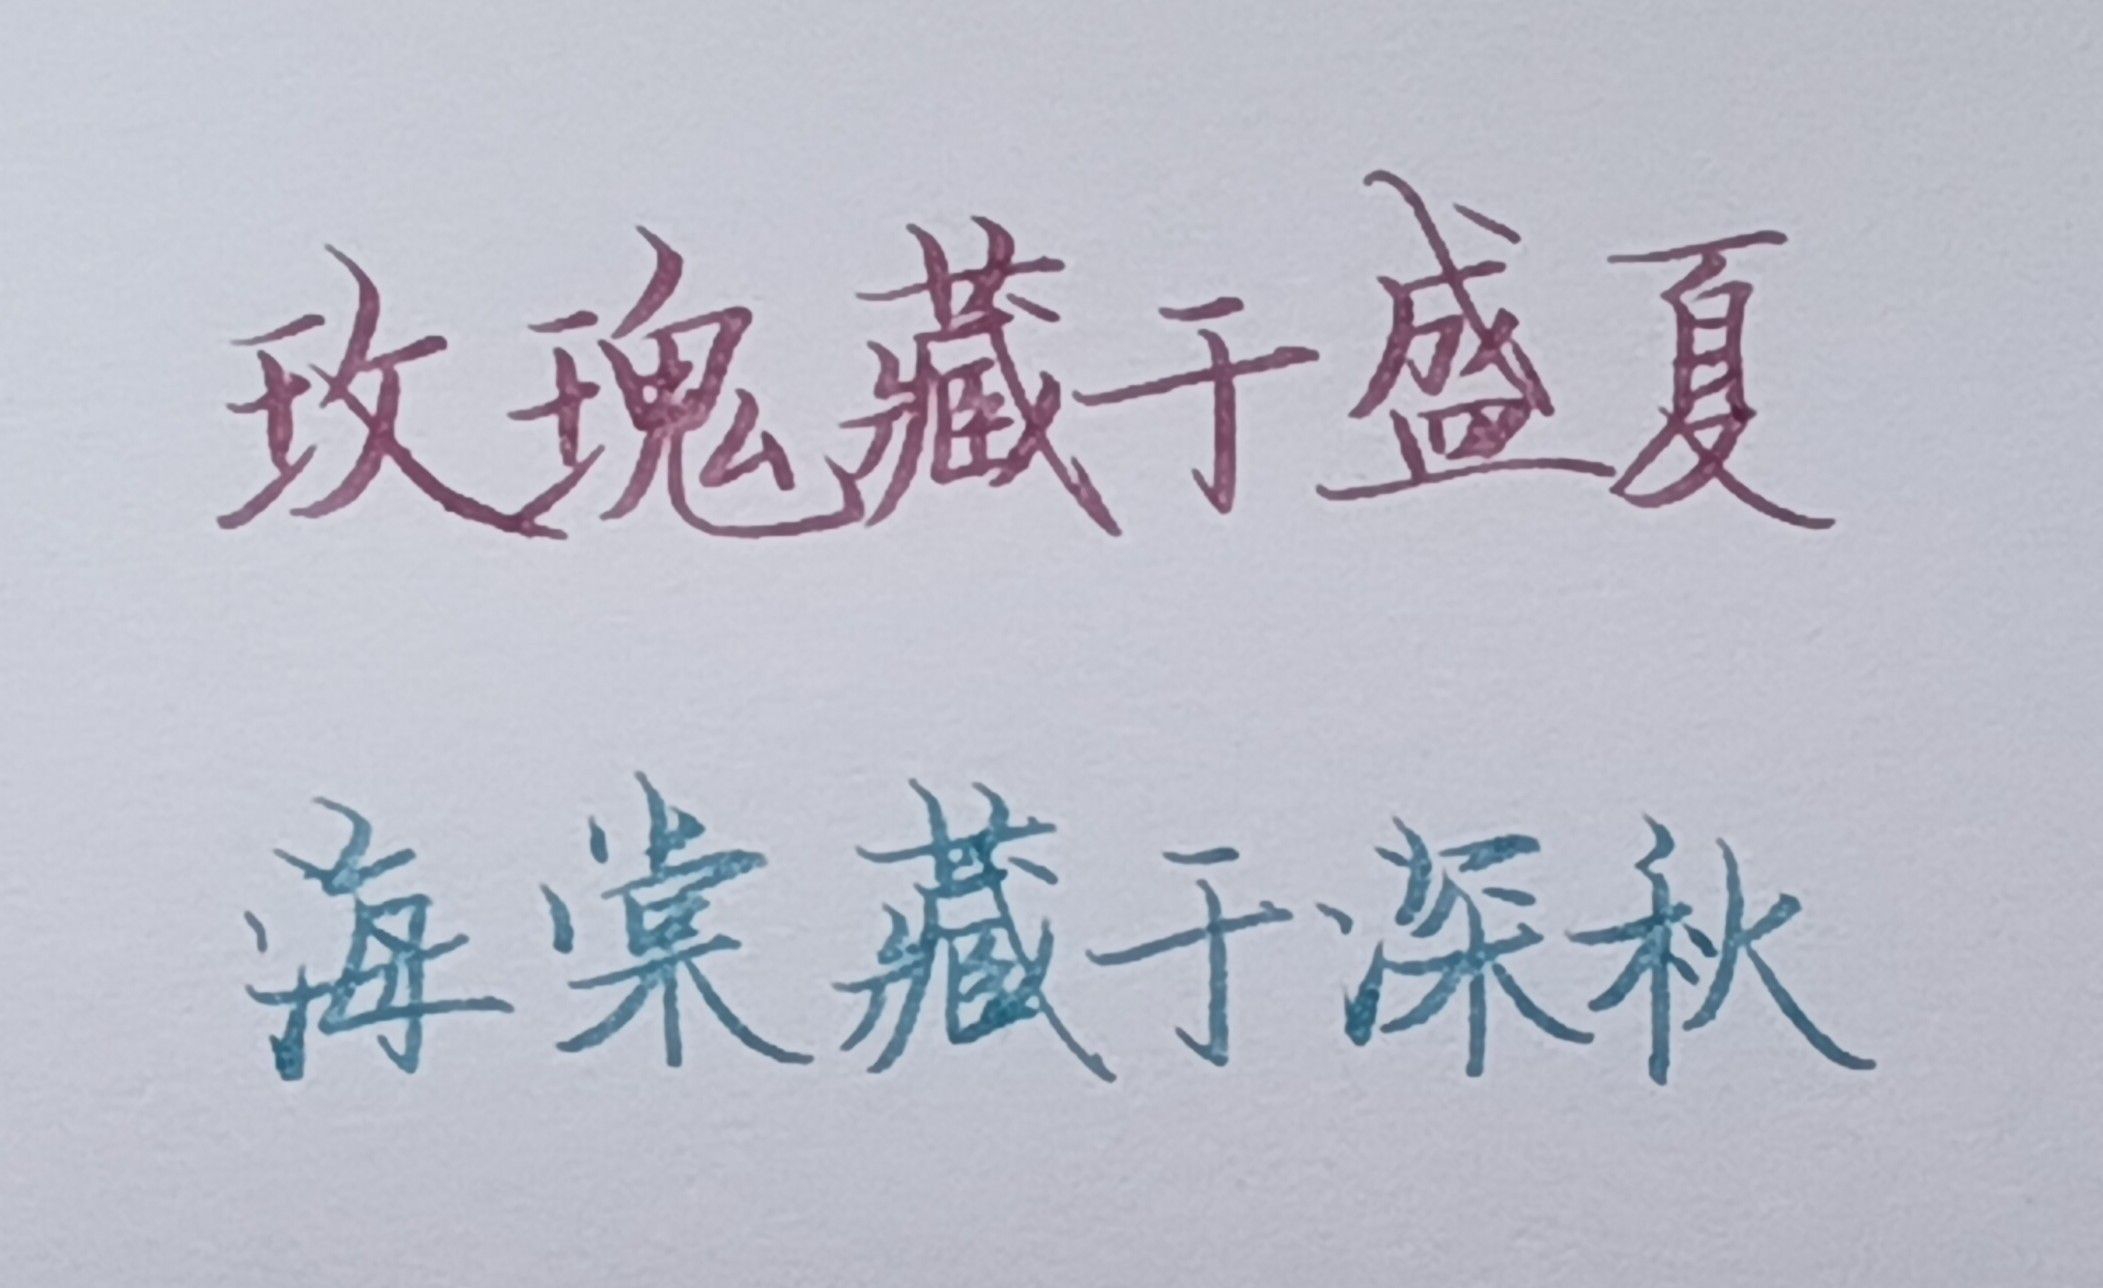 玫瑰藏于盛夏
海棠藏于深秋